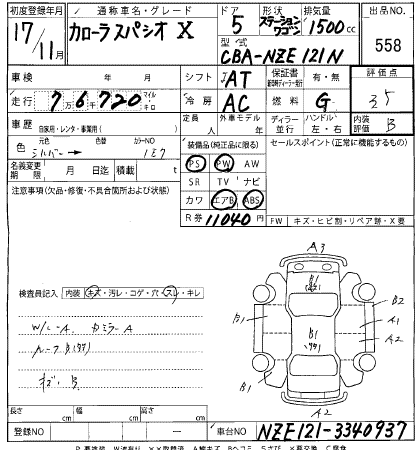 初度登録年月 通称車名・グレード ドア 形状 排気量 出品NO
17/11月 カローラスパシオ X 5 ステーションワゴン 1500cc 558
型式 CBA-NZE121N
車検 年 月 シフト AT 保証書 有・無 評価点
走行 7万6千720 マイル キロ 冷房 AC 燃料 G 35
車歴 自家用・レンタ・事業用( ) 定員 人 外車モデル 年 ディーラー 並行 ハンドル 左・右 内装評価 B
色 シルバー 色替 カラーNO 1E7 装備品(純正品に限る) セールスポイント(正常に機能するもの)
名義変更期限 月 日迄 積載 t PS PW AW
注意事項(欠品・修復・不具合箇所および状態) SR TV ナビ
カワ エアB ABS
R券 11040円 FW キズ・ヒビ割・リペア跡・X要
検査員記入 内装 キズ・汚レ・コゲ・穴・スレ・キレ
A3
B1
B2
B1
A1
B1
A2
B1
A2
W/C-A. ドミラーA
ルーフB
B
長さ cm 幅 cm 高さ cm
登録NO 車台NO NZE121-3340937